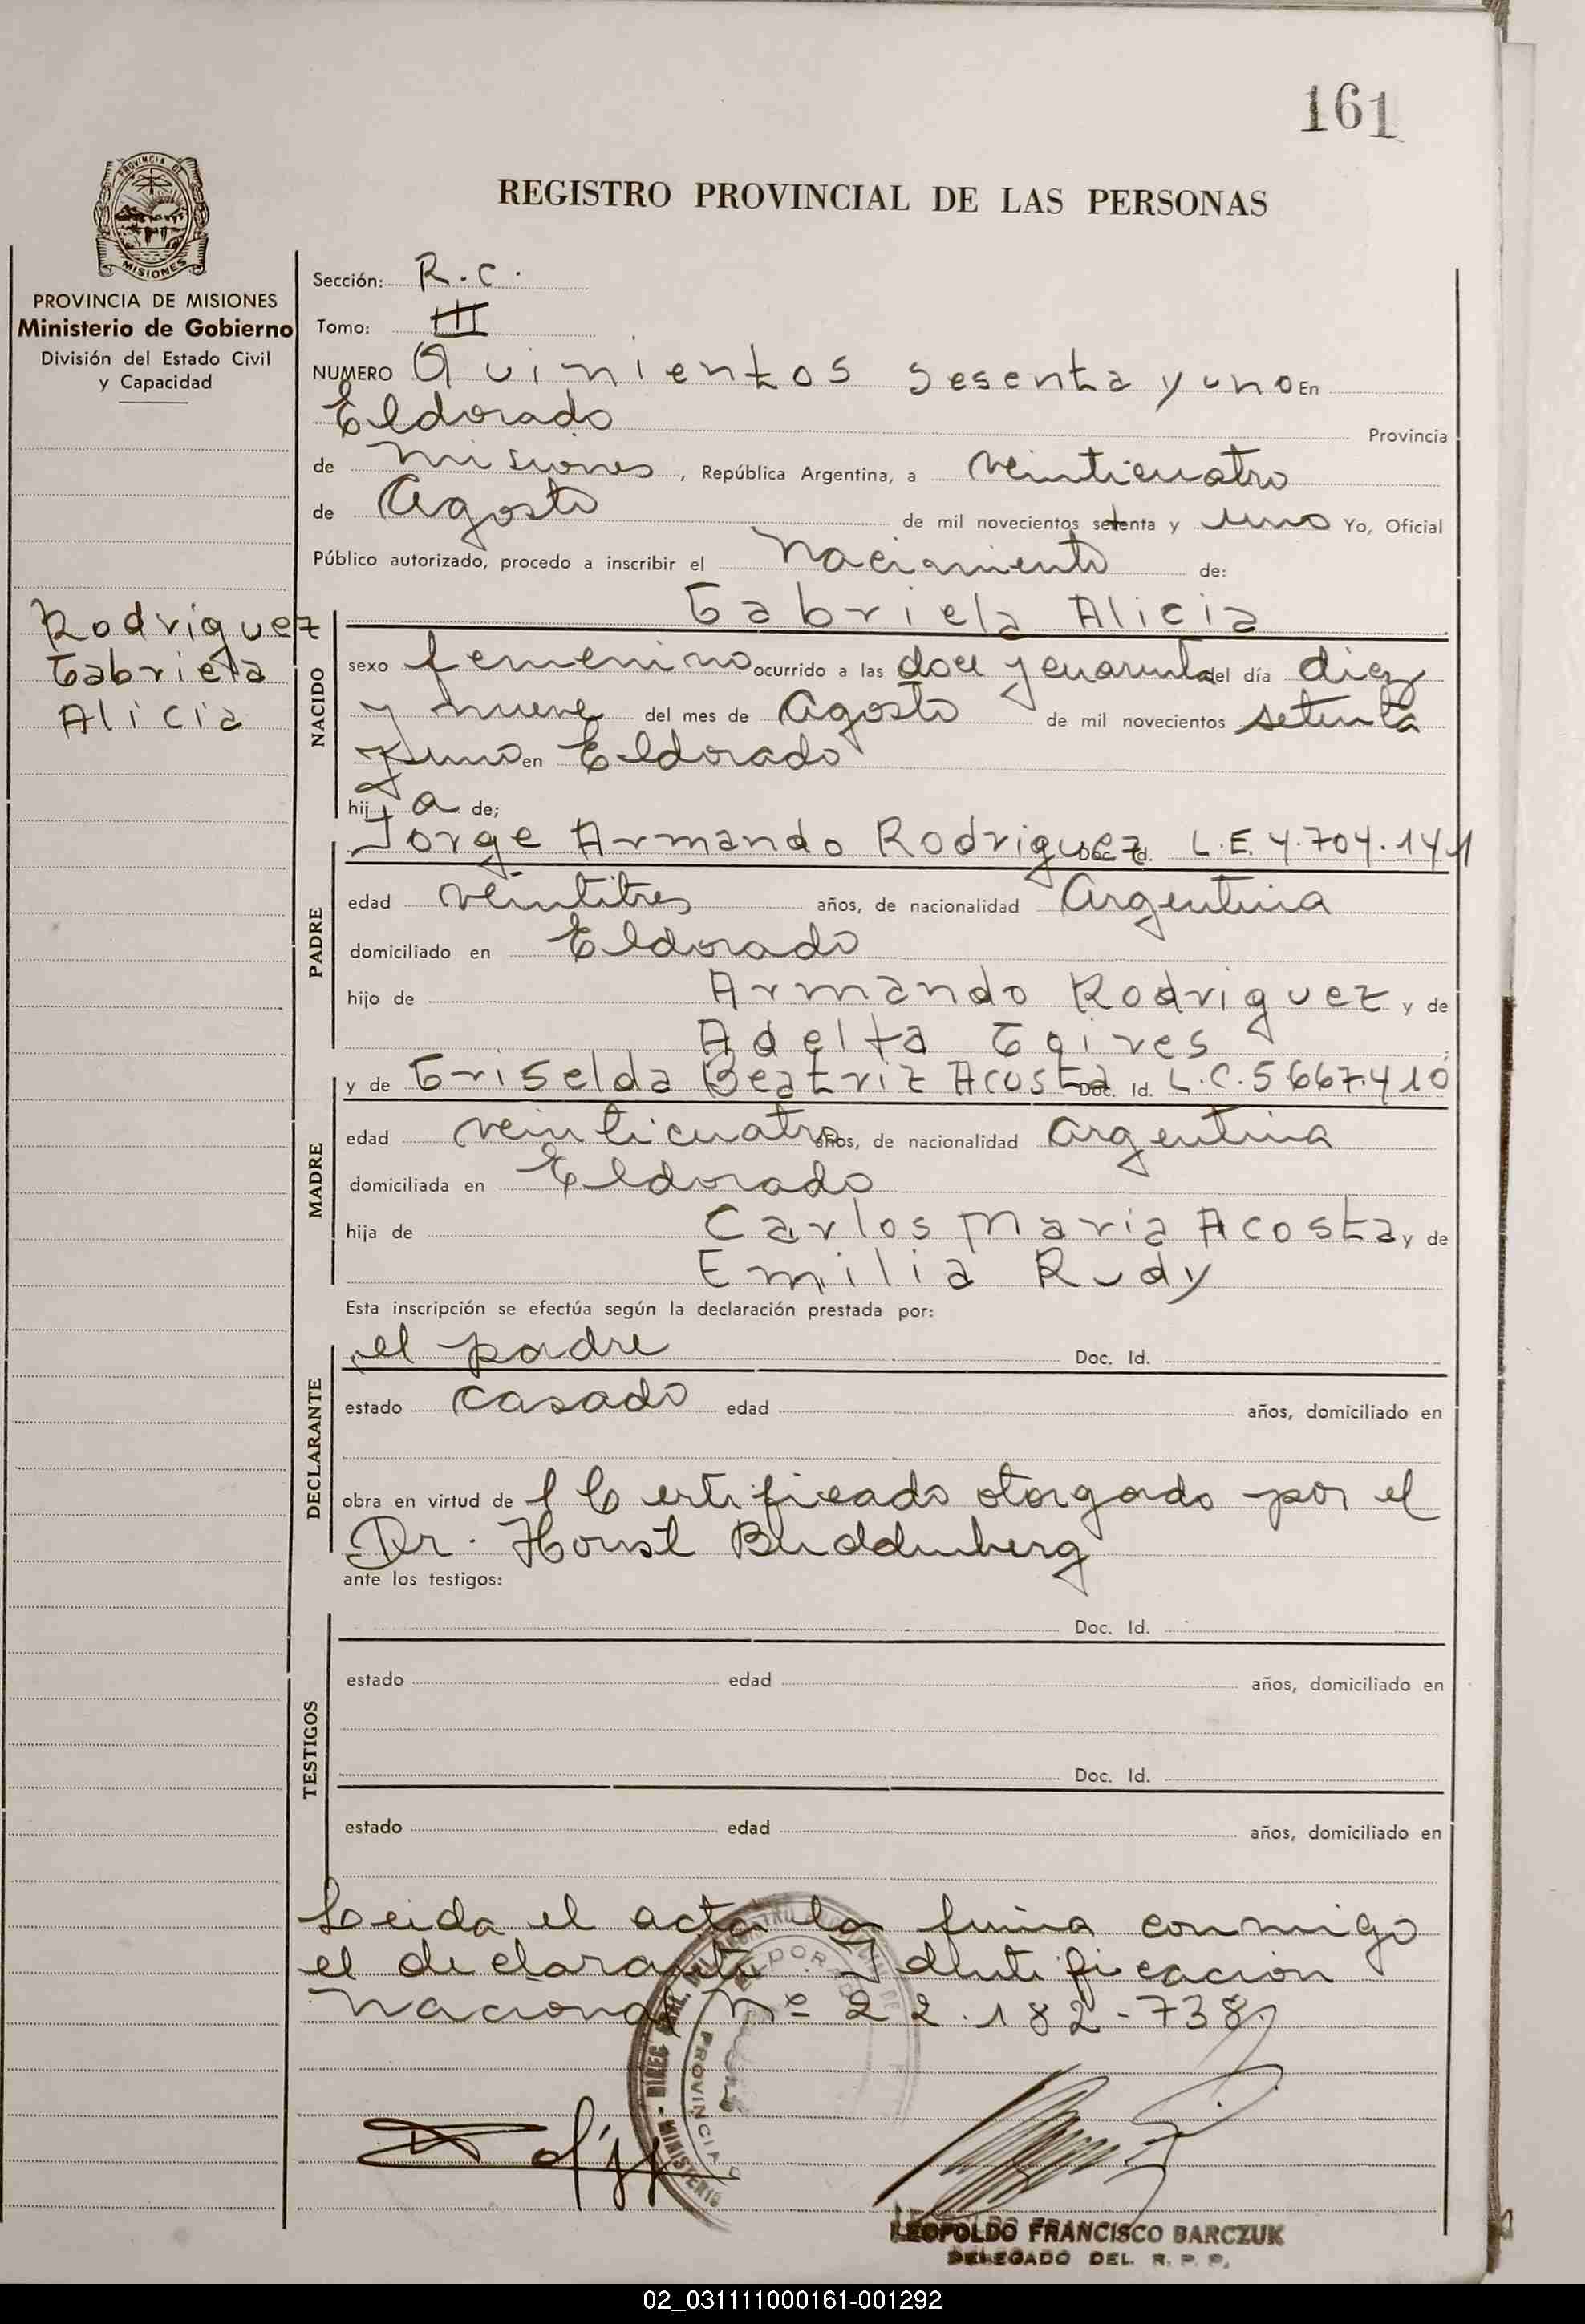 161
PROVINCIA DE
MISIONES
REGISTRO PROVINCIAL DE LAS PERSONAS
PROVINCIA DE MISIONES
Ministerio de Gobierno
División del Estado Civil
y Capacidad
Rodriguez
Gabriela
Alicia
Sección: R.C.
Tomo: III
NUMERO Quinientos sesenta y uno En
Eldorado Provincia
de Misiones, República Argentina, a veinticuatro
de Agosto de mil novecientos setenta y uno Yo, Oficial
Público autorizado, procedo a inscribir el Nacimiento de:
Gabriela Alicia
NACIDO
sexo femenino ocurrido a las doce y cuarenta del día diez
y nueve del mes de Agosto de mil novecientos setenta
y uno en Eldorado
hij a de;
Jorge Armando Rodriguez Doc. Id. L.E. 4.704.141
PADRE
edad veintitres años, de nacionalidad Argentina
domiciliado en Eldorado
hijo de Armando Rodriguez y de
Adelta
y de Griselda Beatriz Acosta Doc. Id. L.C. 5667.410
MADRE
edad veinticuatro años, de nacionalidad Argentina
domiciliada en Eldorado
hija de Carlos Maria Acosta y de
Emilia Rudy
Esta inscripción se efectúa según la declaración prestada por:
el padre Doc. Id.
DECLARANTE
estado casado edad años, domiciliado en
obra en virtud de l Certificado otorgado por el
Dr. Horst Buddenberg
ante los testigos:
Doc. Id.
TESTIGOS
estado edad años, domiciliado en
Doc. Id.
estado edad años, domiciliado en
Leida el acta la firma conmigo
el declarante Identificacion
Nacional Nº 22.182-738
LEOPOLDO FRANCISCO BARCZUK
DELEGADO DEL R. P. P.
02_031111000161-001292